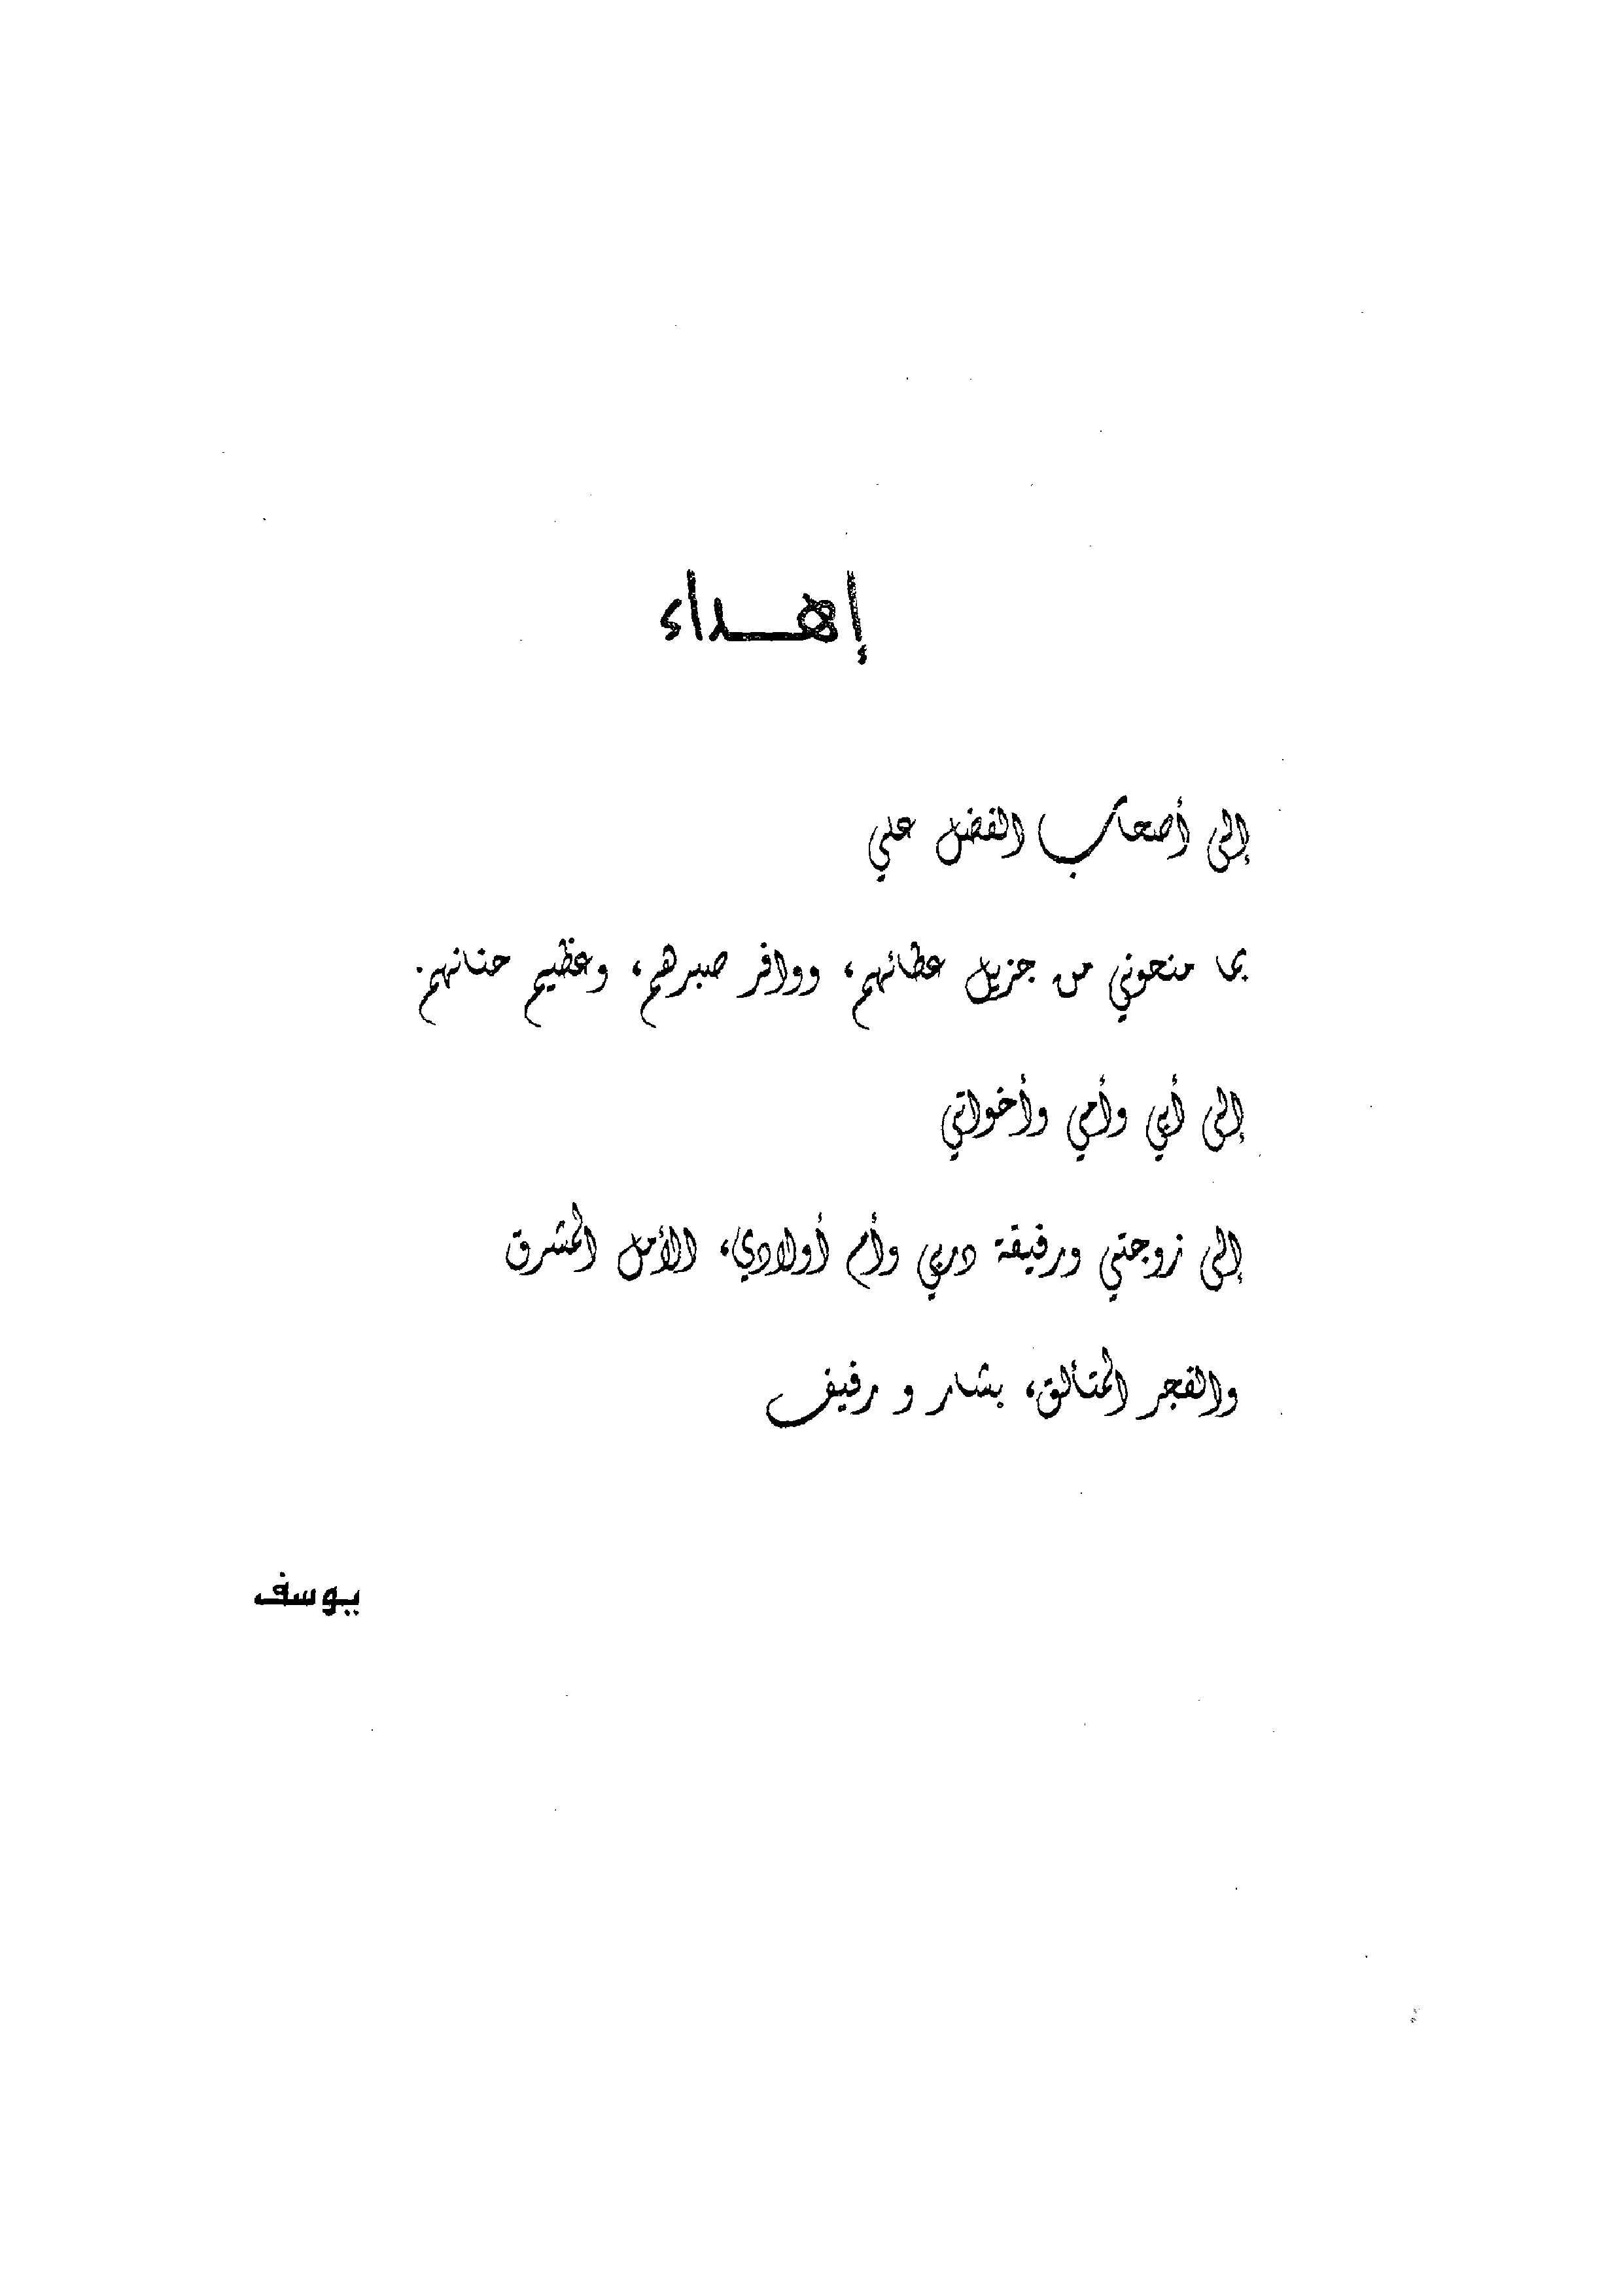 إهـداء
إلى أصحاب الفضل علي
بما منحوني من جزيل عطائهم، ووافر صبرهم، وعظيم حنانهم.
إلى أبي وأمي وأخواتي
إلى زوجتي ورفيقة دربي وأم أولادي، الأمل المشرق
والفجر المتألق، بشار و رفيف
يوسف